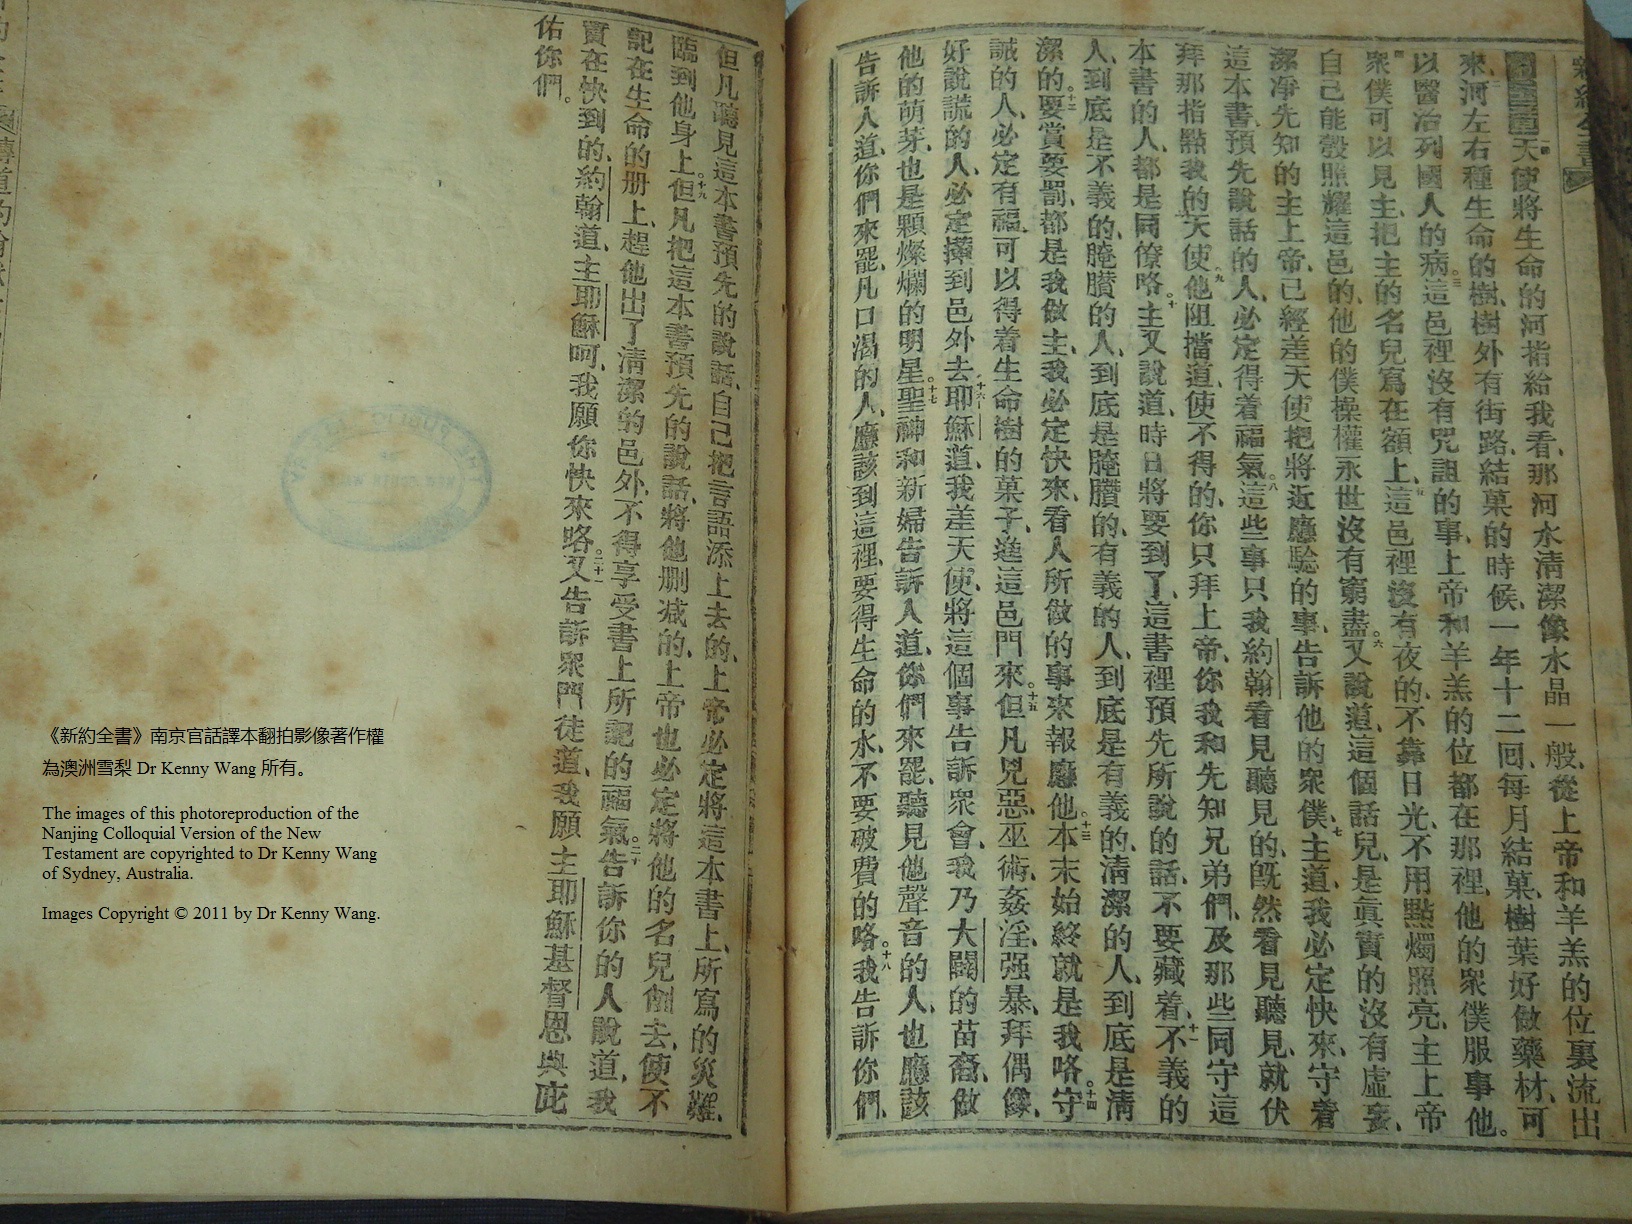 新約全書
天使將生命的河指給我看、那河水清潔像水晶一般、從上帝和羊羔的位裏流出
來、河左右種生命的樹、樹外有街路、結菓的時候、一年十二回、每月結菓、樹葉好做藥材、可
以醫治列國人的病。三這邑裡沒有咒詛的事、上帝和羊羔的位都在那裡、他的衆僕服事他。
衆僕可以見主、把主的名兒寫在額上、這邑裡沒有夜的、不靠日光、不用點燭照亮、主上帝
自己能彀照耀這邑的、他的僕操權永世沒有窮盡。六又說道、這個話兒、是眞實的沒有虛妄、
潔凈先知的主上帝、已經差天使把將近應騐的事、告訴他的衆僕、七主道、我必定快來、守着
這本書、預先說話的人、必定得着福氣。八這些事只我約翰看見聽見的、旣然看見聽見、就伏
拜那指點我的天使。九他阻擋道、使不得的、你只拜上帝、你我和先知兄弟們、及那些同守這
本書的人、都是同僚咯。十主又說道、時日將要到了、這書裡預先所說的話、不要藏着、十一不義的
人、到底是不義的、腌臢的人、到底是腌臢的、有義的人、到底是有義的、清潔的人、到底是清
潔的。十二要賞要罰、都是我做主、我必定快來、看人所做的事來報應他。十三本末始終就是我咯。十四守
誡的人、必定有福、可以得着生命樹的菓子、進這邑門來。十五但凡兇惡、巫術、姦淫、强暴、拜偶像、
好說謊的人、必定攆到邑外去、十六耶穌道、我差天使、將這個事告訴衆會、我乃大闢的苗裔、做
他的萌芽、也是顆燦爛的明星。十七聖神和新婦告訴人道、你們來罷、聽見他聲音的人、也應該
告訴人道、你們來罷、凡口渴的人、應該到這裡、要得生命的水、不要破費的咯。十八我告訴你們、
但凡聽見這本書預先的說話、自己把言語添上去的、上帝必定將這本書上、所寫的災難、
臨到他身上。十九但凡把這本書預先的說話、將他刪减的、上帝也必定將他的名兒、刪去、使不
記在生命的册上、趕他出了清潔的邑外、不得享受書上所記的福氣。二十告訴你的人說道、我
實在快到的、約翰道、主耶穌呵、我願你快來咯。二十一又告訴衆門徒道、我願主耶穌基督恩典庇
佑你們。
《新約全書》南京官話譯本翻拍影像著作權
為澳洲雪梨 Dr Kenny Wang 所有。
The images of this photoreproduction of the
Nanjing Colloquial Version of the New
Testament are copyrighted to Dr Kenny Wang
of Sydney, Australia.
Images Copyright © 2011 by Dr Kenny Wang.